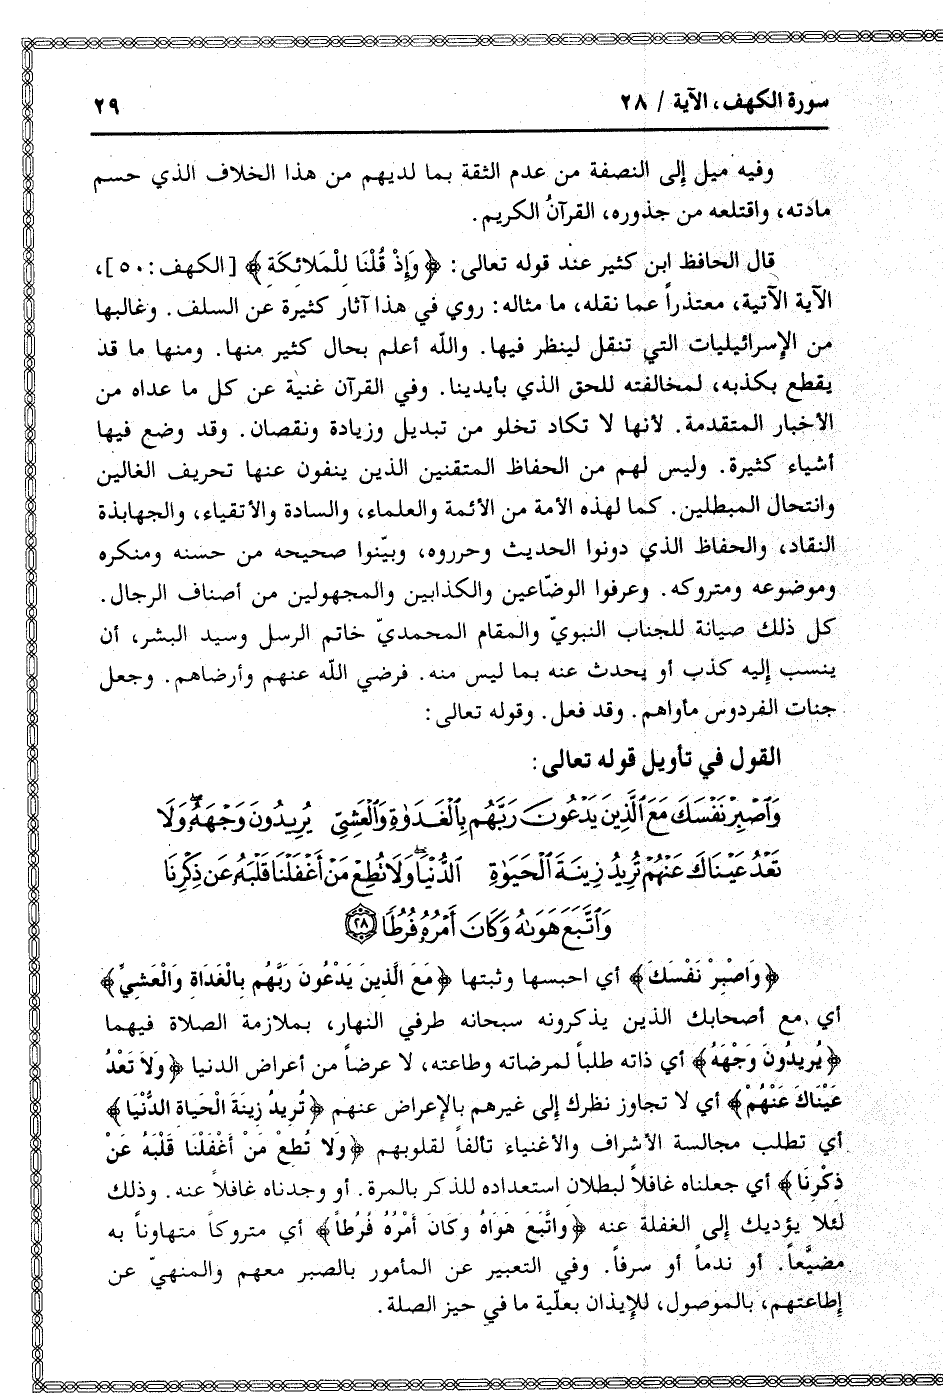 سورة الكهف، الآية / ٢٨
٢٩
وفيه ميل إلى النصفة من عدم الثقة بما لديهم من هذا الخلاف الذي حسم
مادته، واقتلعه من جذوره، القرآنُ الكريم.
قال الحافظ ابن كثير عند قوله تعالى: ﴿وَإِذْ قُلْنَا لِلْمَلائِكَةِ﴾ [الكهف: ٥٠]،
الآية الآتية، معتذراً عما نقله، ما مثاله: روي في هذا آثار كثيرة عن السلف. وغالبها
من الإسرائيليات التي تنقل لينظر فيها. والله أعلم بحال كثير منها. ومنها ما قد
يقطع بكذبه، لمخالفته للحق الذي بأيدينا. وفي القرآن غنية عن كل ما عداه من
الأخبار المتقدمة. لأنها لا تكاد تخلو من تبديل وزيادة ونقصان. وقد وضع فيها
أشياء كثيرة. وليس لهم من الحفاظ المتقنين الذين ينفون عنها تحريف الغالين
وانتحال المبطلين. كما لهذه الأمة من الأئمة والعلماء، والسادة والأتقياء، والجهابذة
النقاد، والحفاظ الذي دونوا الحديث وحرروه، وبيّنوا صحيحه من حسنه ومنكره
وموضوعه ومتروكه. وعرفوا الوضّاعين والكذابين والمجهولين من أصناف الرجال.
كل ذلك صيانة للجناب النبويّ والمقام المحمديّ خاتم الرسل وسيد البشر، أن
ينسب إليه كذب أو يحدث عنه بما ليس منه. فرضي الله عنهم وأرضاهم. وجعل
جنات الفردوس مأواهم. وقد فعل. وقوله تعالى:
القول في تأويل قوله تعالى:
وَٱصْبِرْ نَفْسَكَ مَعَ ٱلَّذِينَ يَدْعُونَ رَبَّهُم بِٱلْغَدَوٰةِ وَٱلْعَشِيِّ يُرِيدُونَ وَجْهَهُۥ ۖ وَلَا
تَعْدُ عَيْنَاكَ عَنْهُمْ تُرِيدُ زِينَةَ ٱلْحَيَوٰةِ ٱلدُّنْيَا ۖ وَلَا تُطِعْ مَنْ أَغْفَلْنَا قَلْبَهُۥ عَن ذِكْرِنَا
وَٱتَّبَعَ هَوَىٰهُ وَكَانَ أَمْرُهُۥ فُرُطًا ﴿٢٨﴾
﴿وَاصْبِرْ نَفْسَكَ﴾ أي احبسها وثبتها ﴿مَعَ الَّذِينَ يَدْعُونَ رَبَّهُم بِالْغَدَاةِ وَالْعَشِيِّ﴾
أي مع أصحابك الذين يذكرونه سبحانه طرفي النهار، بملازمة الصلاة فيهما
﴿يُرِيدُونَ وَجْهَهُ﴾ أي ذاته طلباً لمرضاته وطاعته، لا عرضاً من أعراض الدنيا ﴿وَلاَ تَعْدُ
عَيْنَاكَ عَنْهُمْ﴾ أي لا تجاوز نظرك إلى غيرهم بالإعراض عنهم ﴿تُرِيدُ زِينَةَ الْحَيَاةِ الدُّنْيَا﴾
أي تطلب مجالسة الأشراف والأغنياء تألفاً لقلوبهم ﴿وَلَا تُطِعْ مَنْ أَغْفَلْنَا قَلْبَهُ عَنْ
ذِكْرِنَا﴾ أي جعلناه غافلاً لبطلان استعداده للذكر بالمرة. أو وجدناه غافلاً عنه. وذلك
لئلا يؤديك إلى الغفلة عنه ﴿وَاتَّبَعَ هَوَاهُ وَكَانَ أَمْرُهُ فُرُطاً﴾ أي متروكاً متهاوناً به
مضيَّعاً. أو ندماً أو سرفاً. وفي التعبير عن المأمور بالصبر معهم والمنهيّ عن
إطاعتهم، بالموصول، للإيذان بعلّية ما في حيز الصلة.